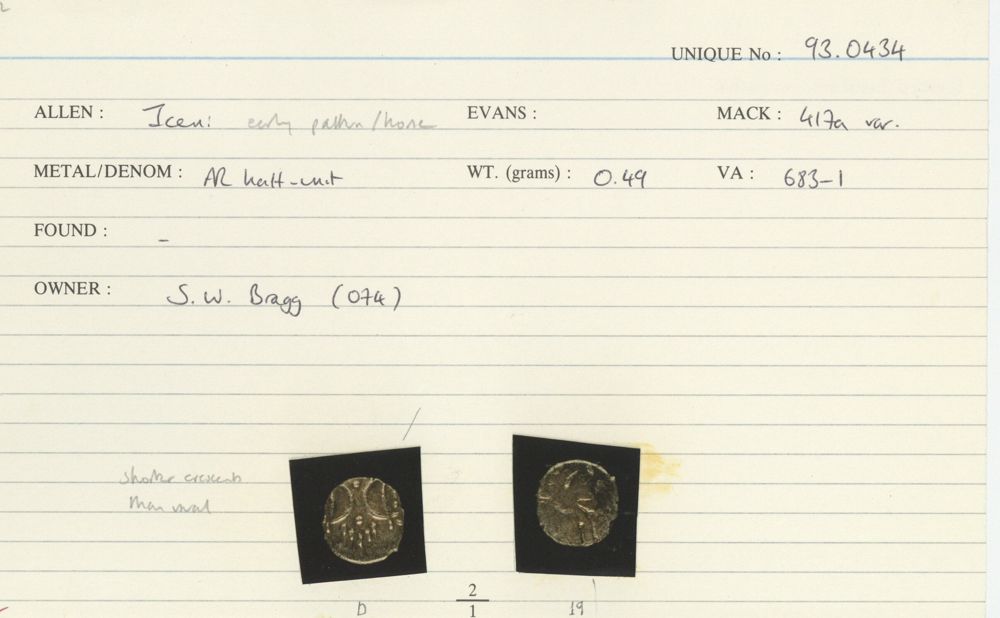 UNIQUE No : 93.0434
ALLEN : Iceni early pattern/horse EVANS : MACK : 417a var.
METAL/DENOM : AR half-unit WT. (grams) : 0.49 VA : 683-1
FOUND : -
OWNER : S. W. Bragg (074)
shorter crescents
than usual
2
D 1 19